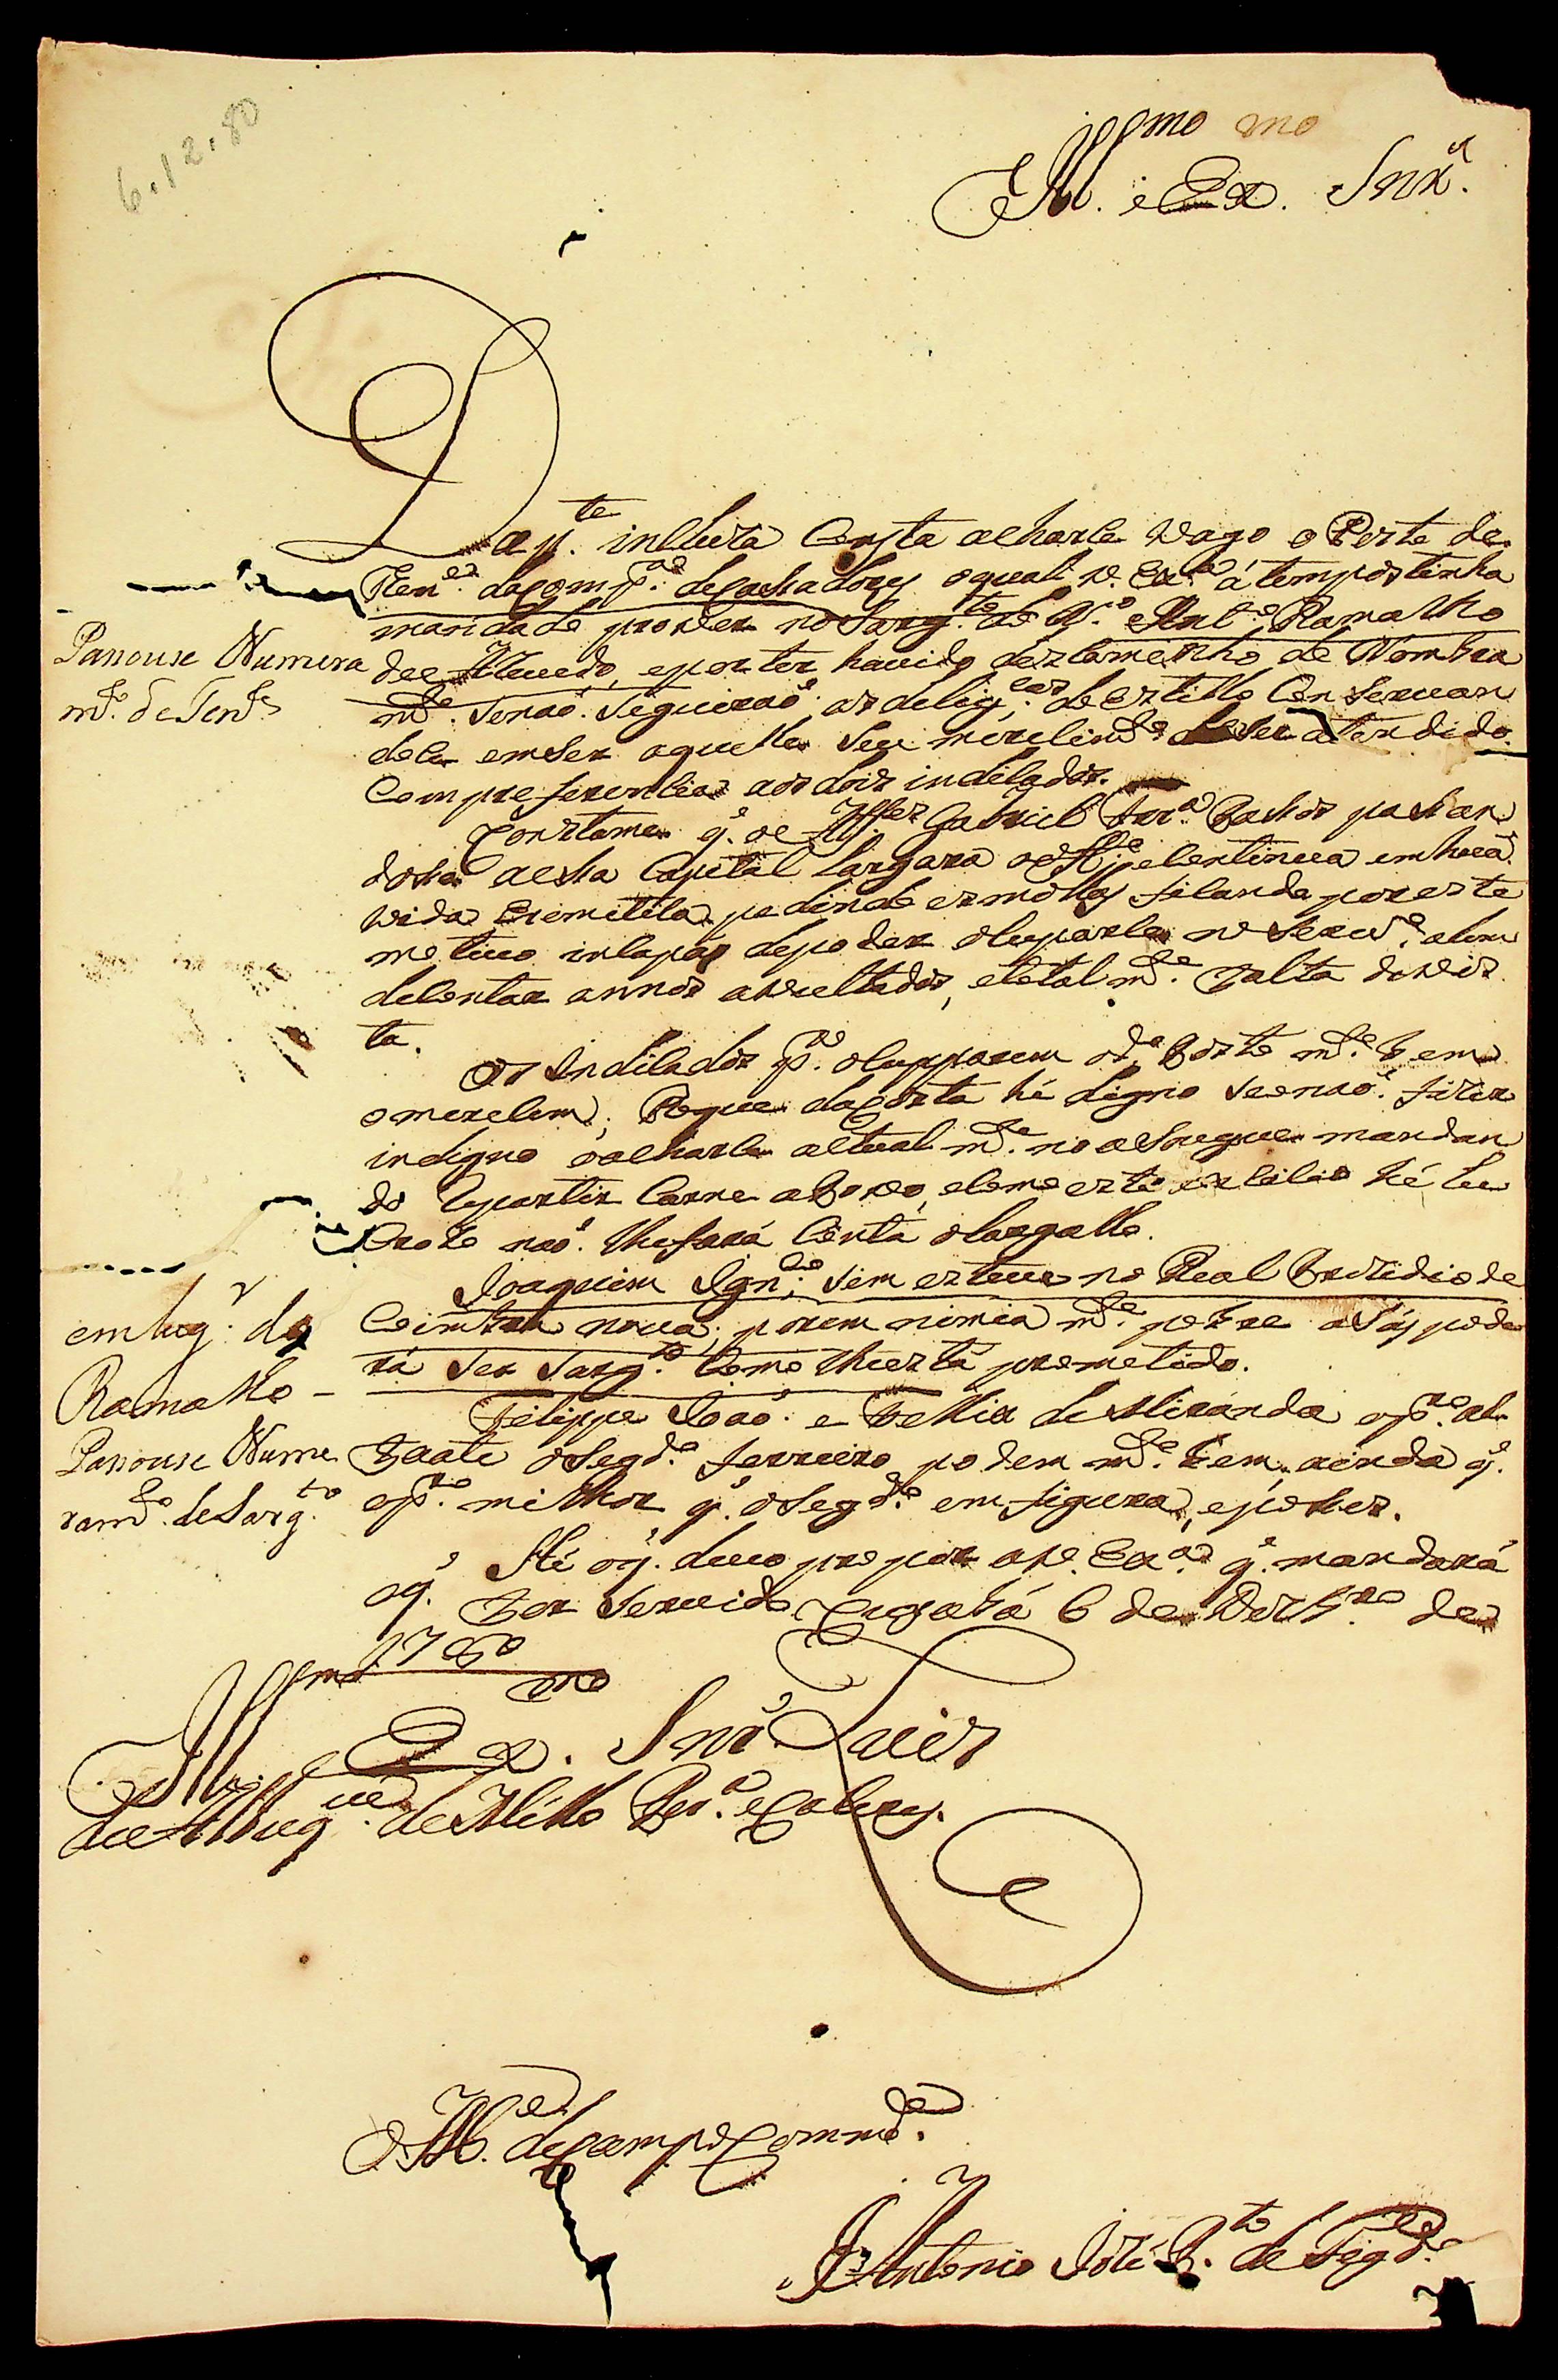 6.12.80
Ill.mo e Ex.mo Snr.
Da p.te incluza Consta acharse vago o Posto de
Ten.es da Comp.a de Cassadores o qual V. Ex.a á tempos tinha
mandado prover no Sarg.to do N.o Ant.o Ramalho
de Azevedo, e por ter havido
m.to Senaõ Seguiraõ as delig.cas do estillo Conservan
doce em Ser aquelle Seu merecim.to de Ser atendido
Com preferencia aos dois indicados.
Constame q. o Alfes Gabriel Fer.a Bastos passan
dosse a essa Capital largara o
vida Eremitica pedindo esmollas ficando por este
motivo incapás de poder ocuparse no Serv.o alem
de contar annos avultados, e total m.te falta de vis
ta.
Os Indicados p.a ocupparem o d.o Posto m.to bem
o merecem, Roque da Costa hé digno Senaõ fizer
indigno o acharse actual m.te no assougue mandan
do repartir Carne a o Povo, e como este exercicio hé lu
crozo naõ lhe fará Conta o largallo.
Joaquim Ign.co Sim esteve no Real Prezidio de
Coimbra nova, porem nimia m.te pobre a Sás pode
rá Ser Sarg.to Como lhe está prometido.
Filippe Joaõ e Felliz de Miranda o p.ro al
faate o Segd.o ferreiro podem m.to bem, ainda q.
o p.ro milhor q. o Segd.o em figura, e posses.
Hé o q. devo propor a V. Ex.a q. mandará
o q. for Servido Cuyabá 6 de Dezb.ro de
1780
Ill.mo e Ex.mo Snr Luis
de Albuq.ue de Mello Per.a e Caceres.
O M.e de Campo Comm.de
Antonio José P.to de Figd.o
Passouse Numera
m.to de Ten.te
em lug.r do
Ramalho -
Passouse Nume
ram.to de Sarg.to